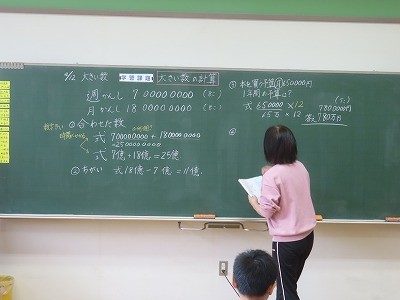 9/12 大きい数 学習課題 大きい数の計算
週かんし 700000000 (さつ)
月かんし 1800000000 (さつ)
① 合わせた数
式 700000000 + 1800000000
=2500000000
式 7億+18億=25億
② ちがい 式 18億-7億=11億
③ 本を買う予算 月 650000円
1年間の予算は?
式 650000 × 12
65万 × 12
7800000円
答え 780万円
④